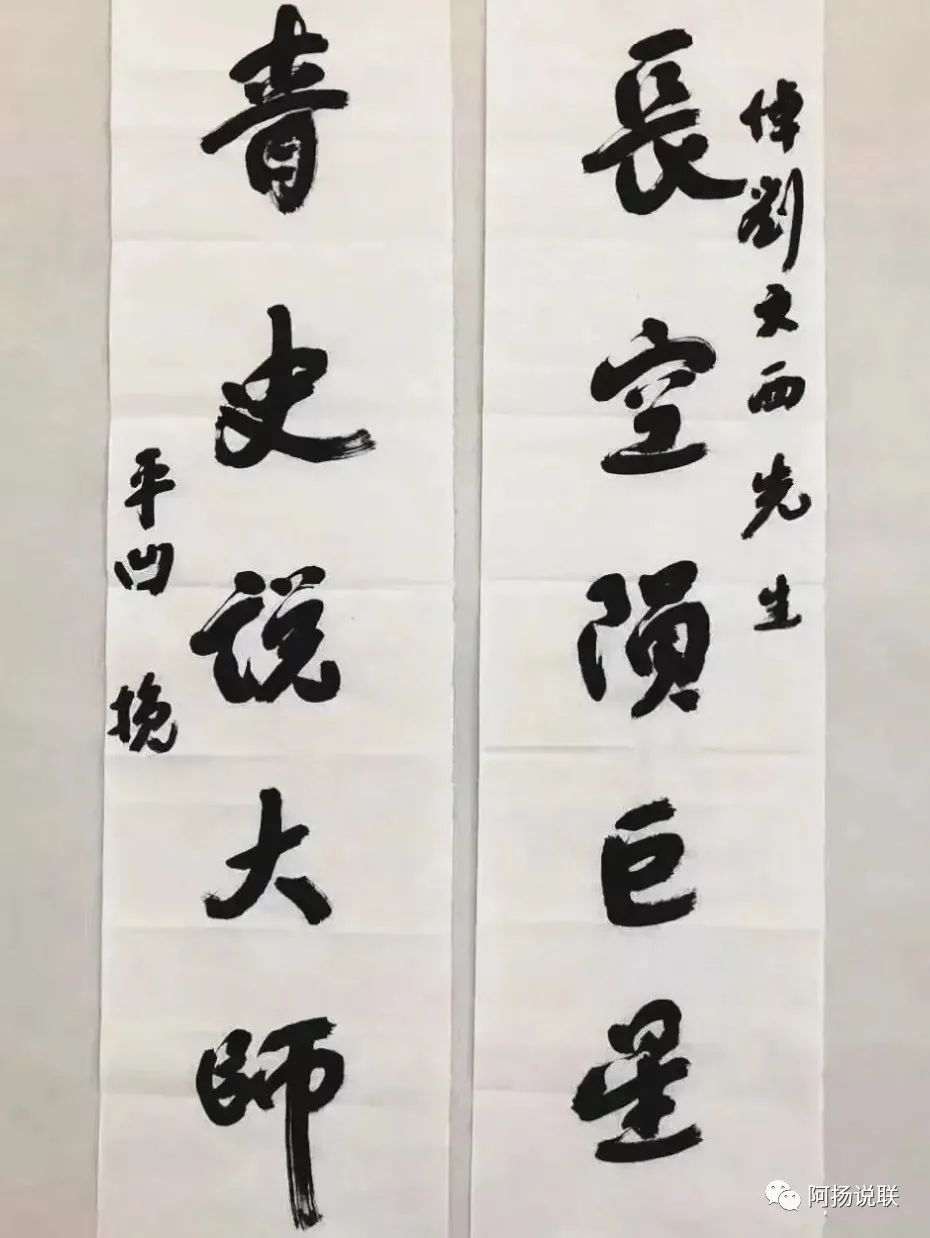 悼劉文西先生
長空隕巨星
青史説大師
平凹 挽
阿扬说联